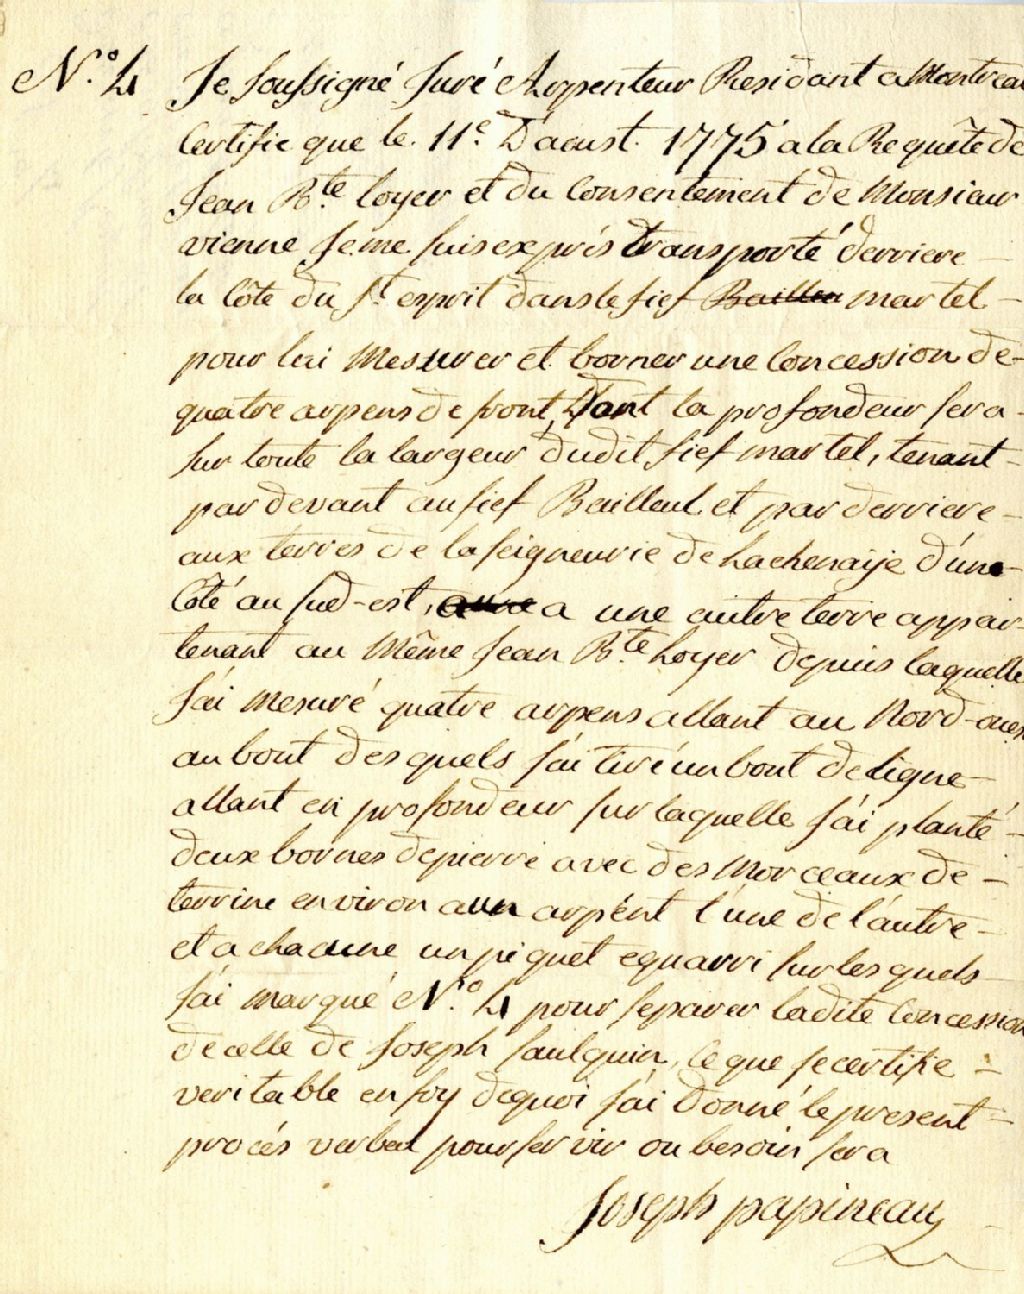 N.º 4 Je soussigné Juré Arpenteur Residant a Montreal
Certifie que le. 11e. D'aoust. 1775 a la Requête de
Jean Bte. loyer et du Consentement de Monsieur
vienne Je me suis exprés transporté derriere
la Côte du St. esprit dans le fief Bailleu martel
pour lui Mesurer et borner une Concession de
quatre arpens de front, Dont la profondeur sera
sur toute la largeur dudit fief martel, tenant
par devant au fief Bailleul et par derriere
aux terres de la seigneurie de Lachenaije d'une
Côté au sud-est, a une autre terre appar-
tenant au Même Jean Bte. Loyer depuis laquelle
J'ai Mesuré quatre arpens allant au Nord-ouest
au bout des quels J'ai tiré un bout de ligne
allant en profondeur sur laquelle J'ai planté
deux bornes de pierre avec des Morceaux de
terrine environ a un arpent l'une de l'autre
et a chacune un piquet equarri sur lesquels
J'ai Marqué N.º 4 pour separer ladite Concession
de celle de Joseph faulquin, Ce que Je certifie
veritable en foy de quoi J'ai donné le present
procés verbal pour servir ou besoin sera
Joseph papineau